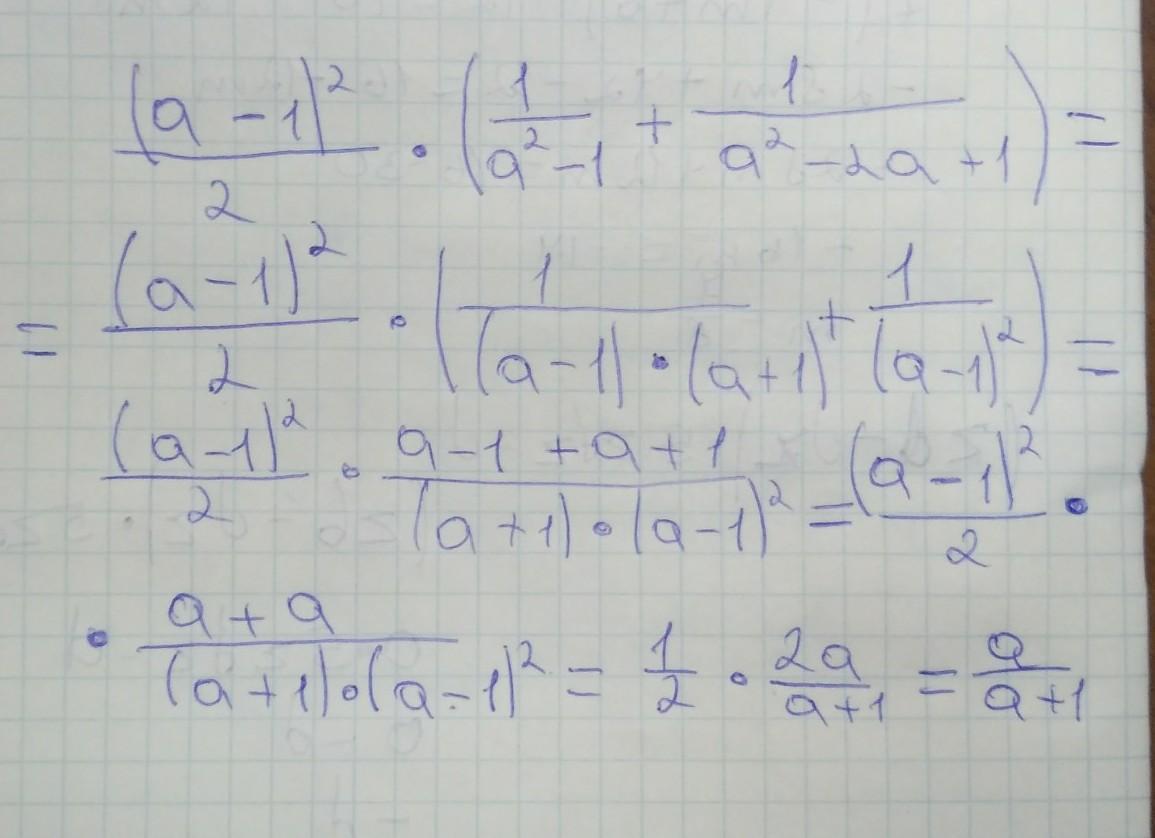 (a - 1)² / 2 · (1 / (a² - 1) + 1 / (a² - 2a + 1)) =
= (a - 1)² / 2 · (1 / ((a - 1) · (a + 1)) + 1 / (a - 1)²) =
(a - 1)² / 2 · (a - 1 + a + 1) / ((a + 1) · (a - 1)²) = (a - 1)² / 2 ·
· (a + a) / ((a + 1) · (a - 1)²) = 1 / 2 · 2a / (a + 1) = a / (a + 1)